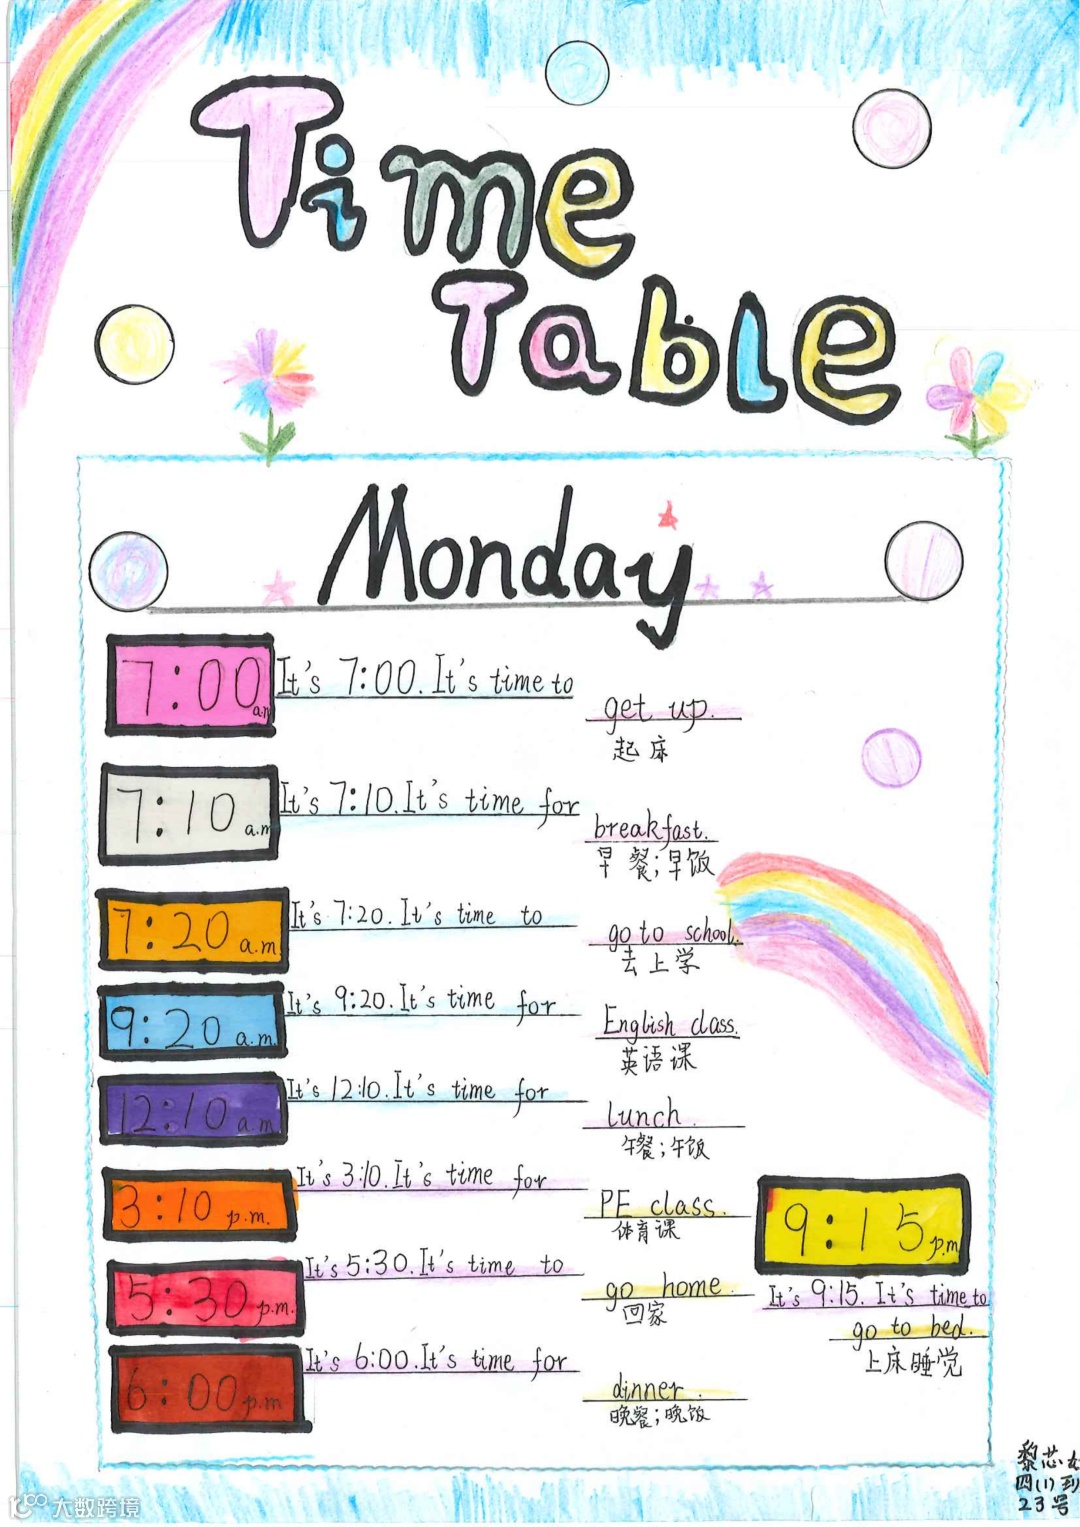 Time
Table
Monday
7:00 a.m
It's 7:00. It's time to
get up.
起床
7:10 a.m
It's 7:10. It's time for
breakfast.
早餐;早饭
7:20 a.m.
It's 7:20. It's time to
go to school.
去上学
9:20 a.m.
It's 9:20. It's time for
English class.
英语课
12:10 a.m
It's 12:10. It's time for
lunch.
午餐;午饭
3:10 p.m.
It's 3:10. It's time for
PE class.
体育课
5:30 p.m.
It's 5:30. It's time to
go home.
回家
6:00 p.m
It's 6:00. It's time for
dinner.
晚餐;晚饭
9:15 p.m
It's 9:15. It's time to
go to bed.
上床睡觉
黎芯
四(1)
23号
大数跨境